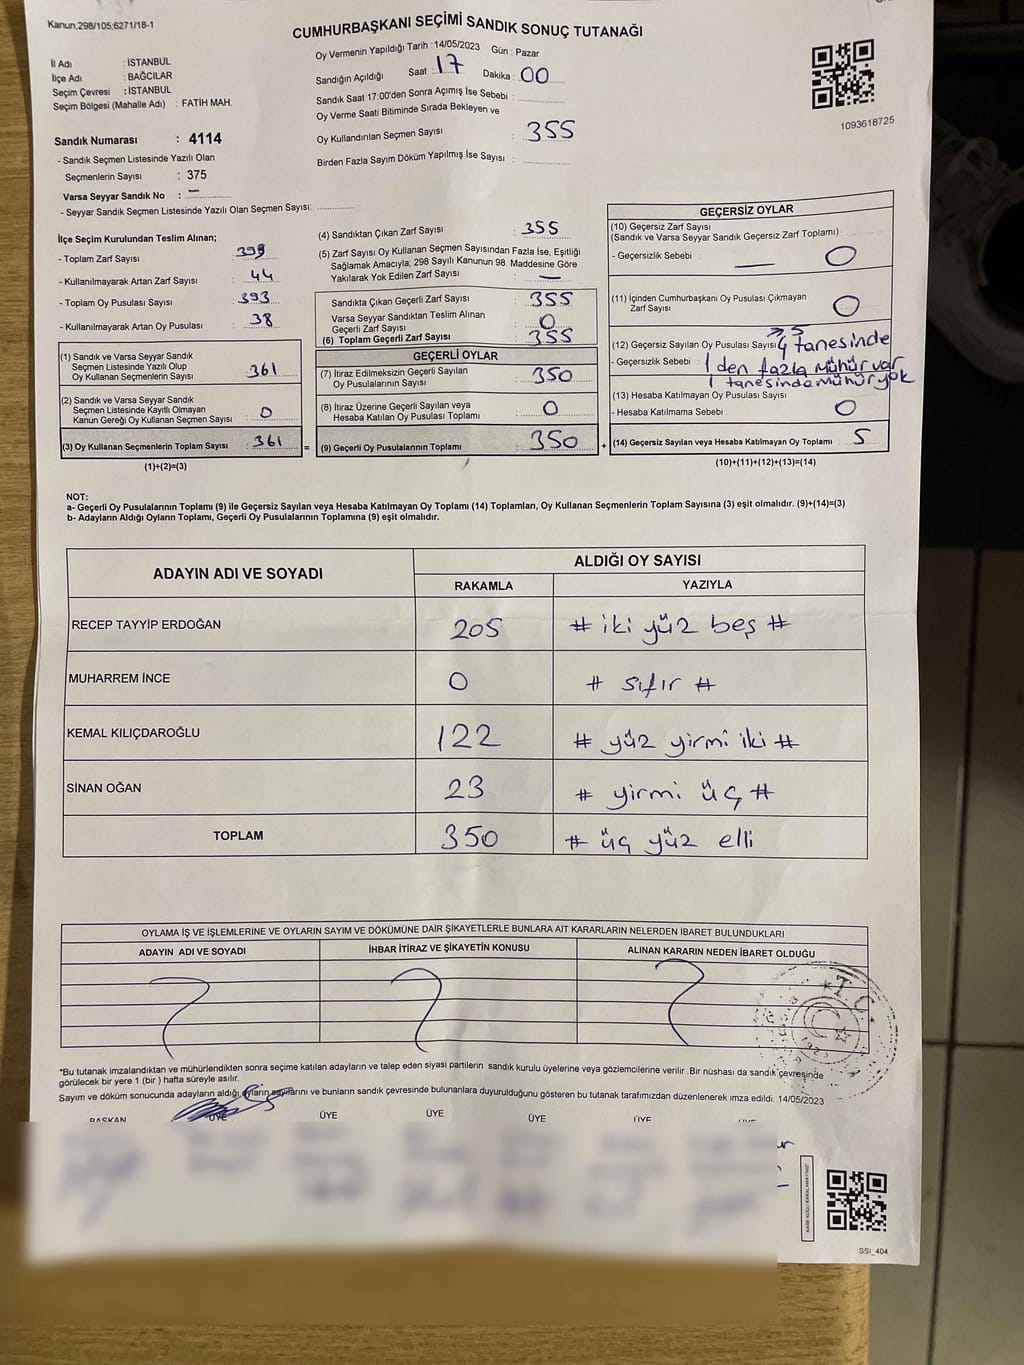 Kanun:298/105;6271/18-1
CUMHURBAŞKANI SEÇİMİ SANDIK SONUÇ TUTANAĞI
İl Adı : İSTANBUL
İlçe Adı : BAĞCILAR
Seçim Çevresi : İSTANBUL
Seçim Bölgesi (Mahalle Adı) : FATİH MAH.
Sandık Numarası : 4114
- Sandık Seçmen Listesinde Yazılı Olan
Seçmenlerin Sayısı : 375
Varsa Seyyar Sandık No : —
- Seyyar Sandık Seçmen Listesinde Yazılı Olan Seçmen Sayısı:
Oy Vermenin Yapıldığı Tarih : 14/05/2023 Gün : Pazar
Sandığın Açıldığı Saat : 17 Dakika : 00
Sandık Saat 17:00'den Sonra Açımış İse Sebebi :
Oy Verme Saati Bitiminde Sırada Bekleyen ve
Oy Kullandırılan Seçmen Sayısı : 355
Birden Fazla Sayım Döküm Yapılmış İse Sayısı :
1093618725
İlçe Seçim Kurulundan Teslim Alınan;
- Toplam Zarf Sayısı : 399
- Kullanılmayarak Artan Zarf Sayısı : 44
- Toplam Oy Pusulası Sayısı : 393
- Kullanılmayarak Artan Oy Pusulası : 38
(1) Sandık ve Varsa Seyyar Sandık
Seçmen Listesinde Yazılı Olup
Oy Kullanan Seçmenlerin Sayısı : 361
(2) Sandık ve Varsa Seyyar Sandık
Seçmen Listesinde Kayıtlı Olmayan
Kanun Gereği Oy Kullanan Seçmen Sayısı : 0
(3) Oy Kullanan Seçmenlerin Toplam Sayısı : 361 =
(1)+(2)=(3)
(4) Sandıktan Çıkan Zarf Sayısı : 355
(5) Zarf Sayısı Oy Kullanan Seçmen Sayısından Fazla İse, Eşitliği
Sağlamak Amacıyla; 298 Sayılı Kanunun 98. Maddesine Göre
Yakılarak Yok Edilen Zarf Sayısı : —
Sandıkta Çıkan Geçerli Zarf Sayısı : 355
Varsa Seyyar Sandıktan Teslim Alınan
Geçerli Zarf Sayısı : 0
(6) Toplam Geçerli Zarf Sayısı : 355
GEÇERLİ OYLAR
(7) İtiraz Edilmeksizin Geçerli Sayılan
Oy Pusulalarının Sayısı : 350
(8) İtiraz Üzerine Geçerli Sayılan veya
Hesaba Katılan Oy Pusulası Toplamı : 0
(9) Geçerli Oy Pusulalarının Toplamı : 350 +
GEÇERSİZ OYLAR
(10) Geçersiz Zarf Sayısı
(Sandık ve Varsa Seyyar Sandık Geçersiz Zarf Toplamı) :
- Geçersizlik Sebebi : — 0
(11) İçinden Cumhurbaşkanı Oy Pusulası Çıkmayan
Zarf Sayısı : 0
(12) Geçersiz Sayılan Oy Pusulası Sayısı 5 4 tanesinde
- Geçersizlik Sebebi : 1 den fazla mühür var
1 tanesinde mühür yok
(13) Hesaba Katılmayan Oy Pusulası Sayısı
- Hesaba Katılmama Sebebi : 0
(14) Geçersiz Sayılan veya Hesaba Katılmayan Oy Toplamı : 5
(10)+(11)+(12)+(13)=(14)
NOT:
a- Geçerli Oy Pusulalarının Toplamı (9) ile Geçersiz Sayılan veya Hesaba Katılmayan Oy Toplamı (14) Toplamları, Oy Kullanan Seçmenlerin Toplam Sayısına (3) eşit olmalıdır. (9)+(14)=(3)
b- Adayların Aldığı Oyların Toplamı, Geçerli Oy Pusulalarının Toplamına (9) eşit olmalıdır.
ADAYIN ADI VE SOYADI ALDIĞI OY SAYISI
RAKAMLA YAZIYLA
RECEP TAYYİP ERDOĞAN 205 # iki yüz beş #
MUHARREM İNCE 0 # sıfır #
KEMAL KILIÇDAROĞLU 122 # yüz yirmi iki #
SİNAN OĞAN 23 # yirmi üç #
TOPLAM 350 # üç yüz elli
OYLAMA İŞ VE İŞLEMLERİNE VE OYLARIN SAYIM VE DÖKÜMÜNE DAİR ŞİKAYETLERLE BUNLARA AİT KARARLARIN NELERDEN İBARET BULUNDUKLARI
ADAYIN ADI VE SOYADI İHBAR İTİRAZ VE ŞİKAYETİN KONUSU ALINAN KARARIN NEDEN İBARET OLDUĞU
T.C.
*Bu tutanak imzalandıktan ve mühürlendikten sonra seçime katılan adayların ve talep eden siyasi partilerin sandık kurulu üyelerine veya gözlemcilerine verilir.Bir nüshası da sandık çevresinde
görülecek bir yere 1 (bir ) hafta süreyle asılır.
Sayım ve döküm sonucunda adayların aldığı oyların sayılarını ve bunların sandık çevresinde bulunanlara duyurulduğunu gösteren bu tutanak tarafımızdan düzenlenerek imza edildi. 14/05/2023
BAŞKAN ÜYE ÜYE ÜYE ÜYE ÜYE ÜYE
SSI_404